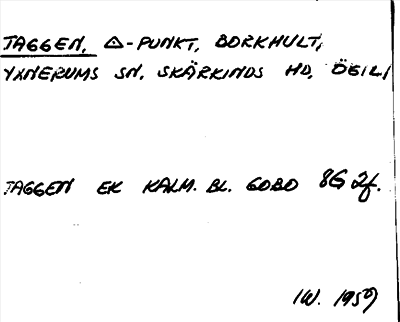 TAGGEN, △-PUNKT, BORKHULT,
YXNERUMS SN, SKÄRKINDS HD, ÖGIL,
TAGGEN EK KALM. BL. GOBO 8G 2f.
IW. 1959